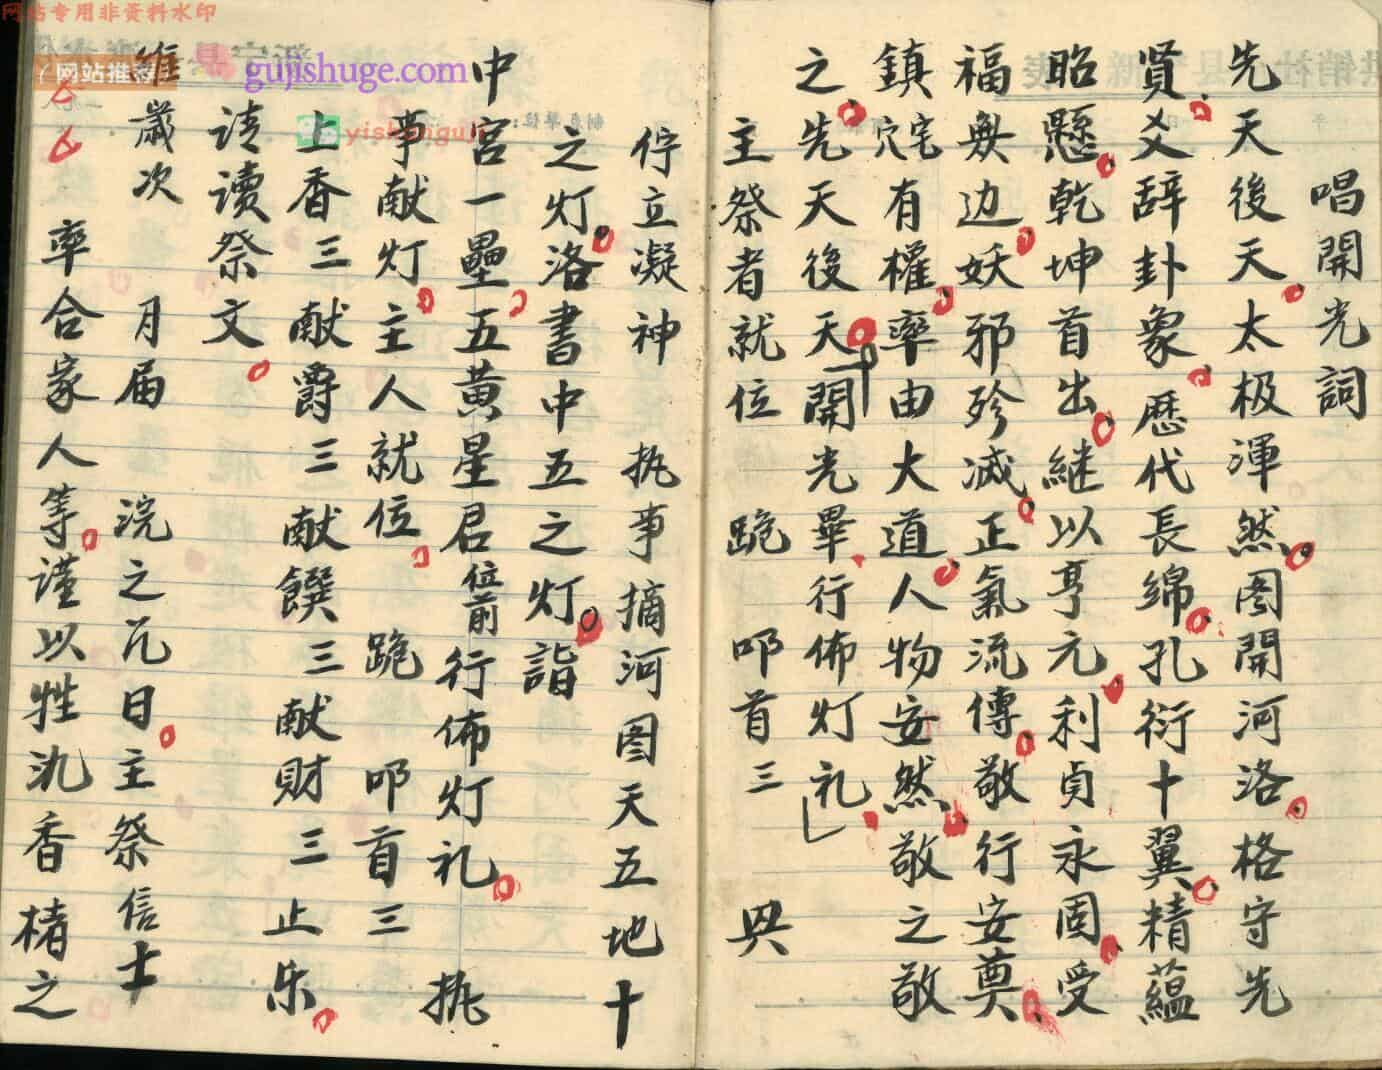 唱開光詞
先天後天太极渾然图開河洛格守先
贤爻辞卦象歷代長綿孔衍十翼精蕴
昭懸乾坤首出継以亨元利貞永固受
福無边妖邪殄滅正氣流傳敬行安奠
鎮宅穴有權率由大道人物安然敬之敬
之先天後天開光畢行佈灯礼
主祭者就位 跪 叩首三 兴
佇立凝神 执事摘河图天五地十
之灯洛書中五之灯詣
中宮一壘五黄星君位前行佈灯礼 执
事献灯主人就位 跪 叩首三
上香三献爵三献饌三献财三止乐
请读祭文
維歲次 月届 浣之几日主祭信士
率合家人等謹以牲氿香楮之
网站专用非资料水印
网站推荐
gujishuge.com
yishenguji